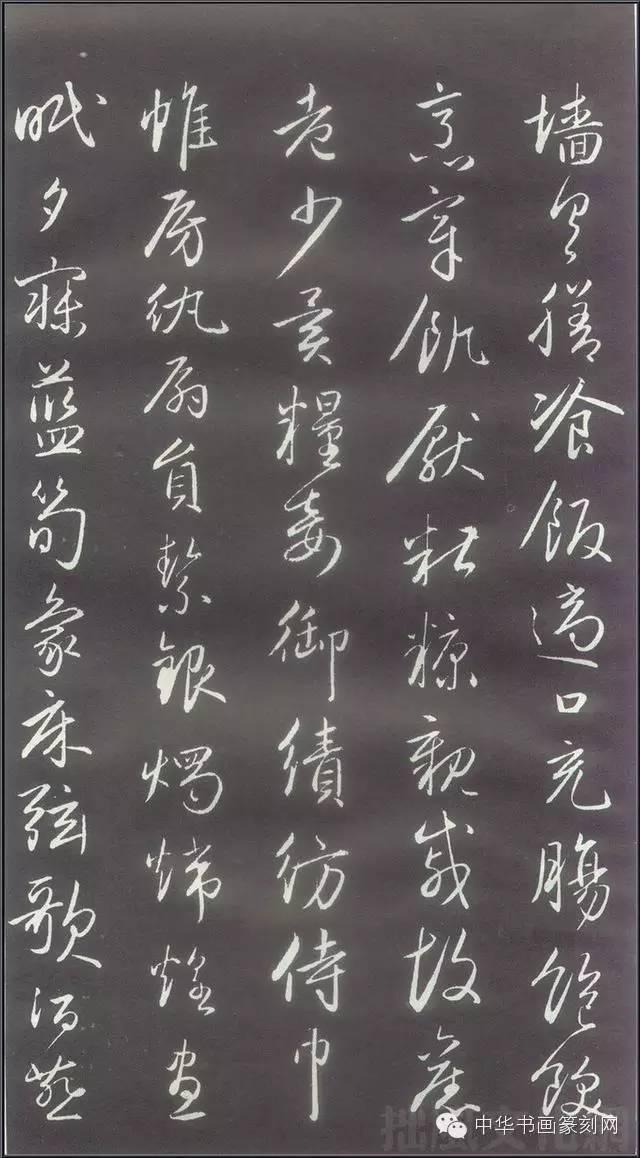 墙具膳飡飯適口充腸飽飫
烹宰飢厭糟糠親戚故舊
老少異糧妾御績紡侍巾
帷房紈扇員絜銀燭煒煌晝
眠夕寐藍笋象床弦歌酒燕
拙風文化網
中华书画篆刻网